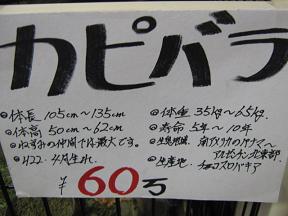 カピバラ
●体長 105cm～135cm
●体高 50cm～62cm
●ねずみの仲間では最大です。
●H22 4月生れ
●体重 35kg～65kg.
●寿命 5年～10年
●生息地域 南アメリカのパナマ～
アルゼンチン北東部
●生産地 チェコスロバキア
¥60万